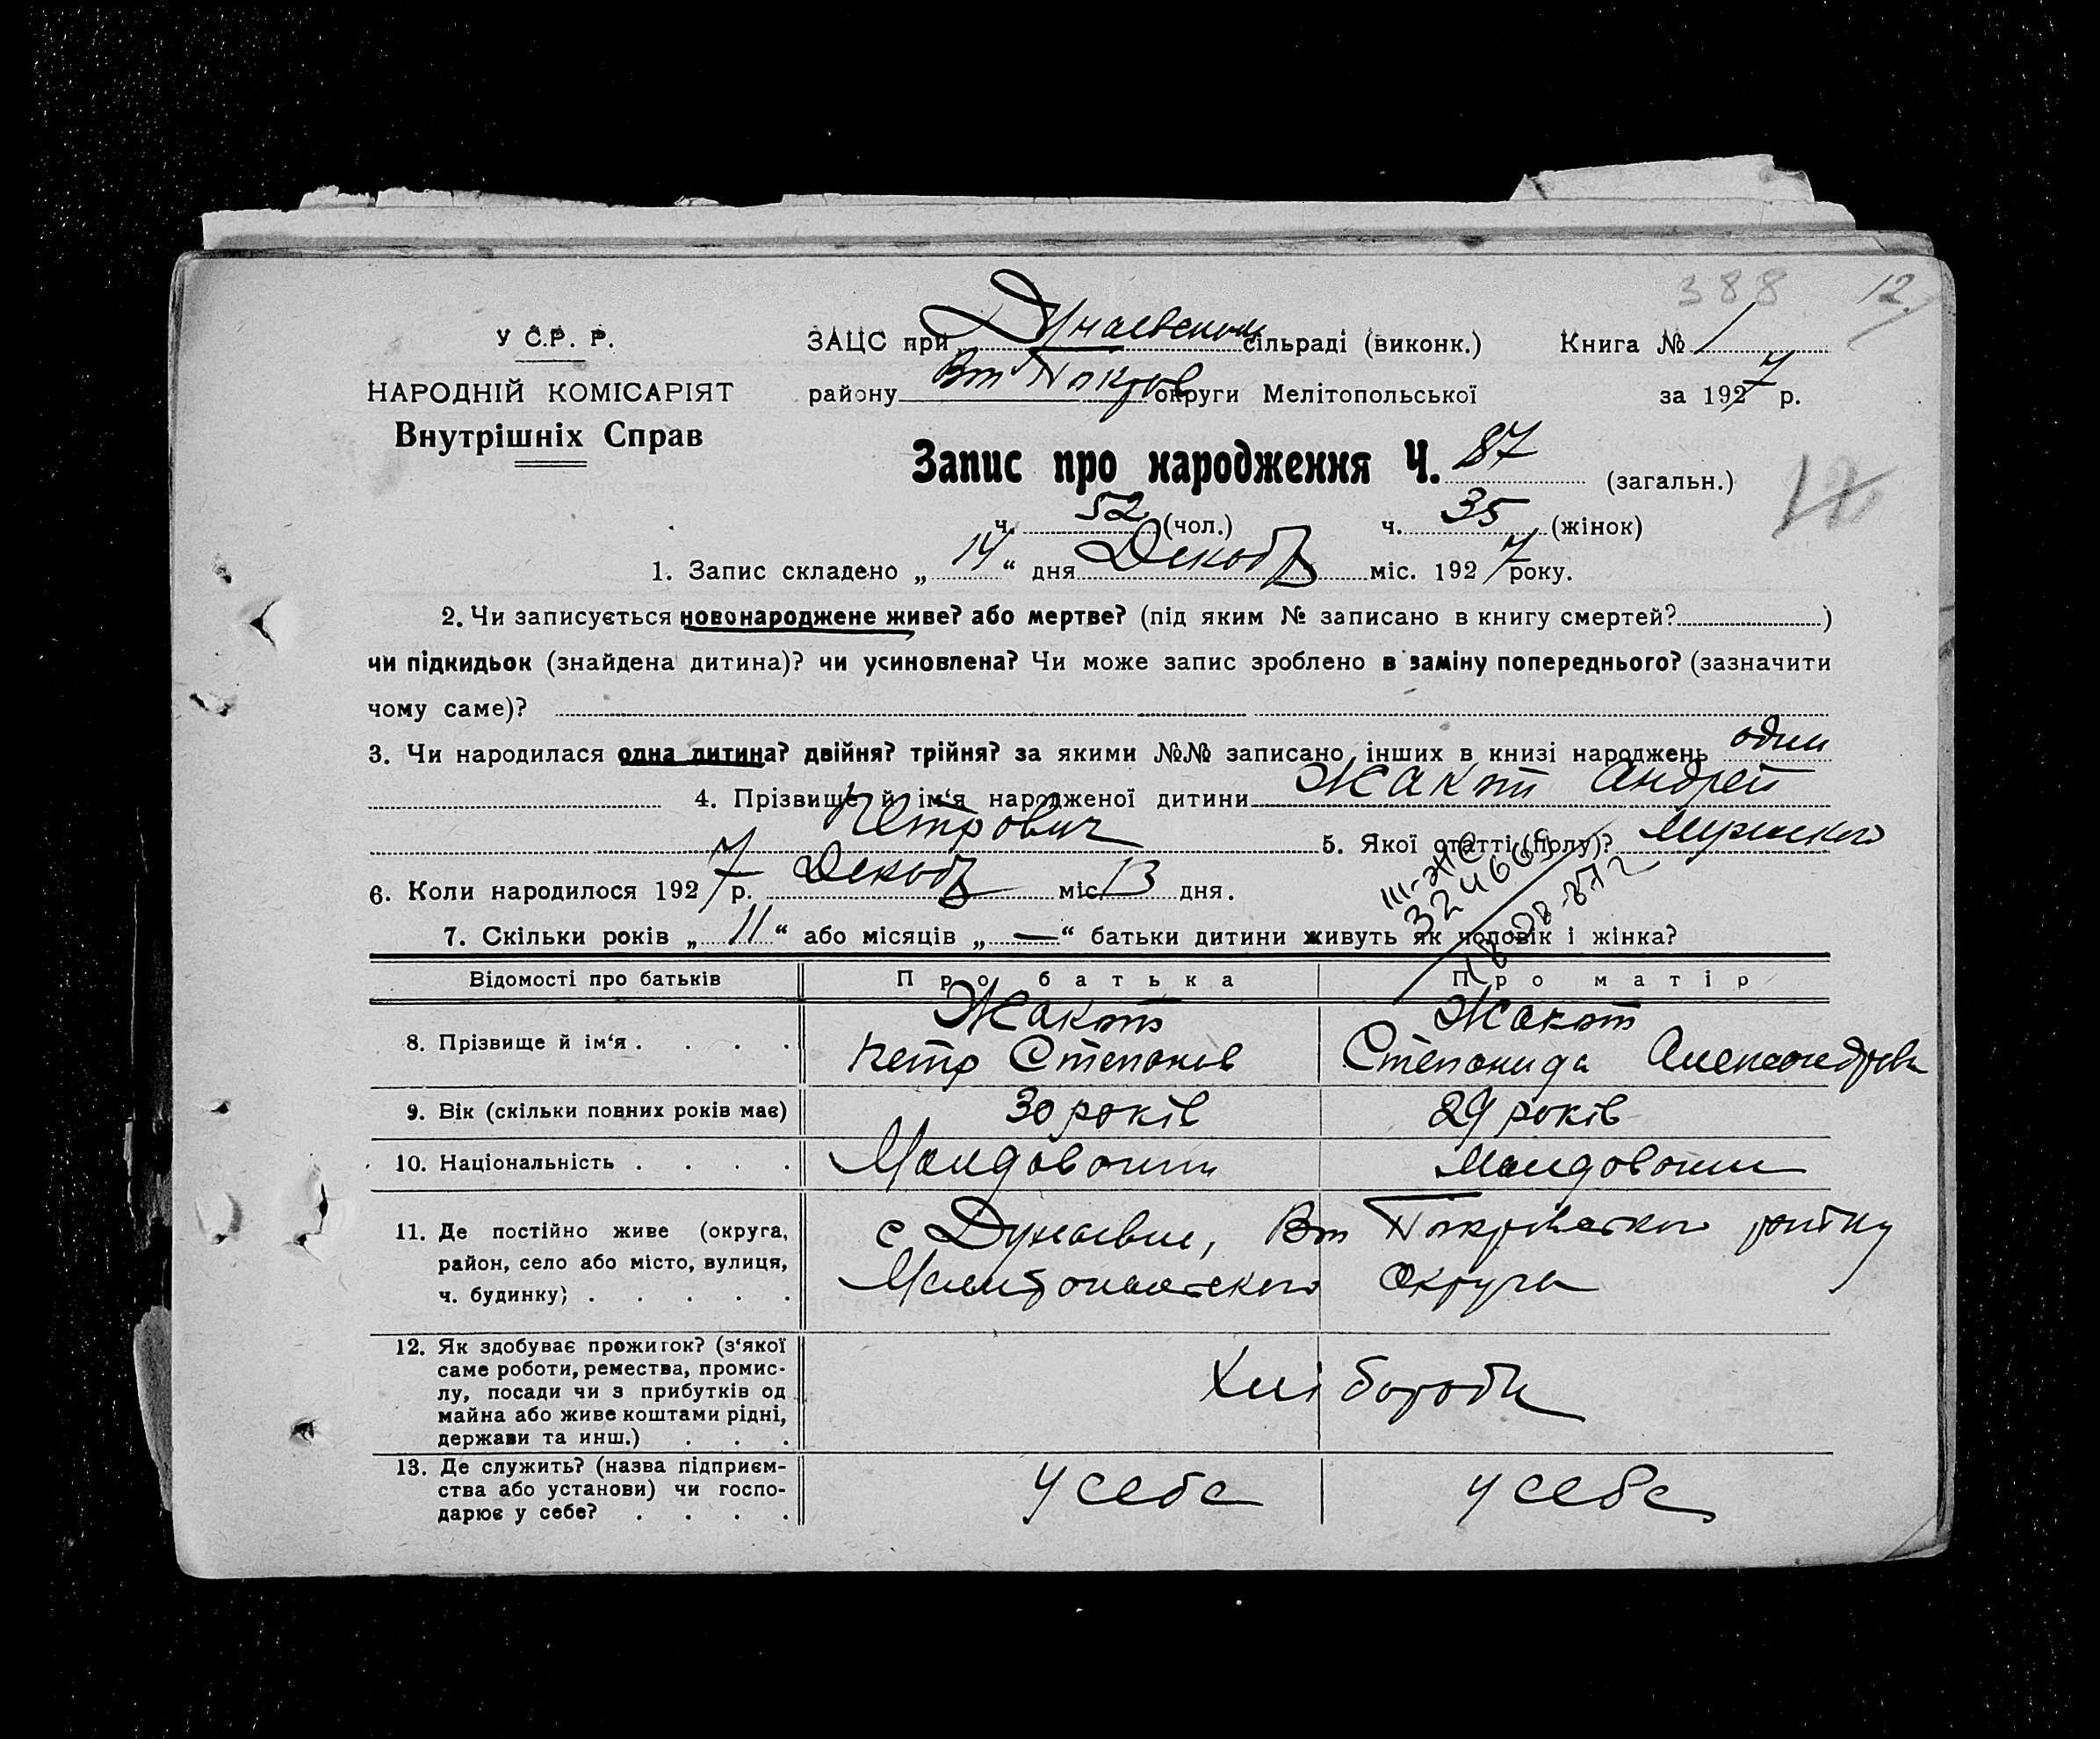 388 12
У С.Р. Р. ЗАЦС при Дунаевской сільраді (виконк.) Книга № 1
НАРОДНІЙ КОМІСАРІЯТ району Вт Покров округи Мелітопольської за 1927 р.
Внутрішніх Справ
Запис про народження Ч. 87 (загальн.)
12
ч. 52 (чол.) ч. 35 (жінок)
1. Запис складено „ 14 “ дня Декаб міс. 1927 року.
2. Чи записується новонароджене живе? або мертве? (під яким № записано в книгу смертей? )
чи підкидьок (знайдена дитина)? чи усиновлена? Чи може запис зроблено в заміну попереднього? (зазначити
чому саме)?
3. Чи народилася одна дитина? двійня? трійня? за якими №№ записано інших в книзі народжень один
4. Прізвище й ім‘я народженої дитини Жакот Андрей
Петрович 5. Якої статті (полу)? Мужского
6. Коли народилося 1927 р. Декаб міс. 13 дня.
7. Скільки років „ 11 “ або місяців „ — “ батьки дитини живуть як чоловік і жінка?
Відомості про батьків Про батька Про матір
8. Прізвище й ім‘я . . . . Жакот Жакот
Петр Степанов Степанида Александров
9. Вік (скільки повних років має) 30 років 29 років
10. Національність . . . . Молдовани Молдовани
11. Де постійно живе (округа, с Дунаевка, Вт Покровского району
район, село або місто, вулиця, Мелитопольского Округа
ч. будинку) . . . . .
12. Як здобуває прожиток? (з‘якої
саме роботи, ремества, промис-
лу, посади чи з прибутків од Хлібороби
майна або живе коштами рідні,
держави та инш.) . . .
13. Де служить? (назва підприєм-
ства або установи) чи госпо- у себе у себе
дарює у себе? . . . .